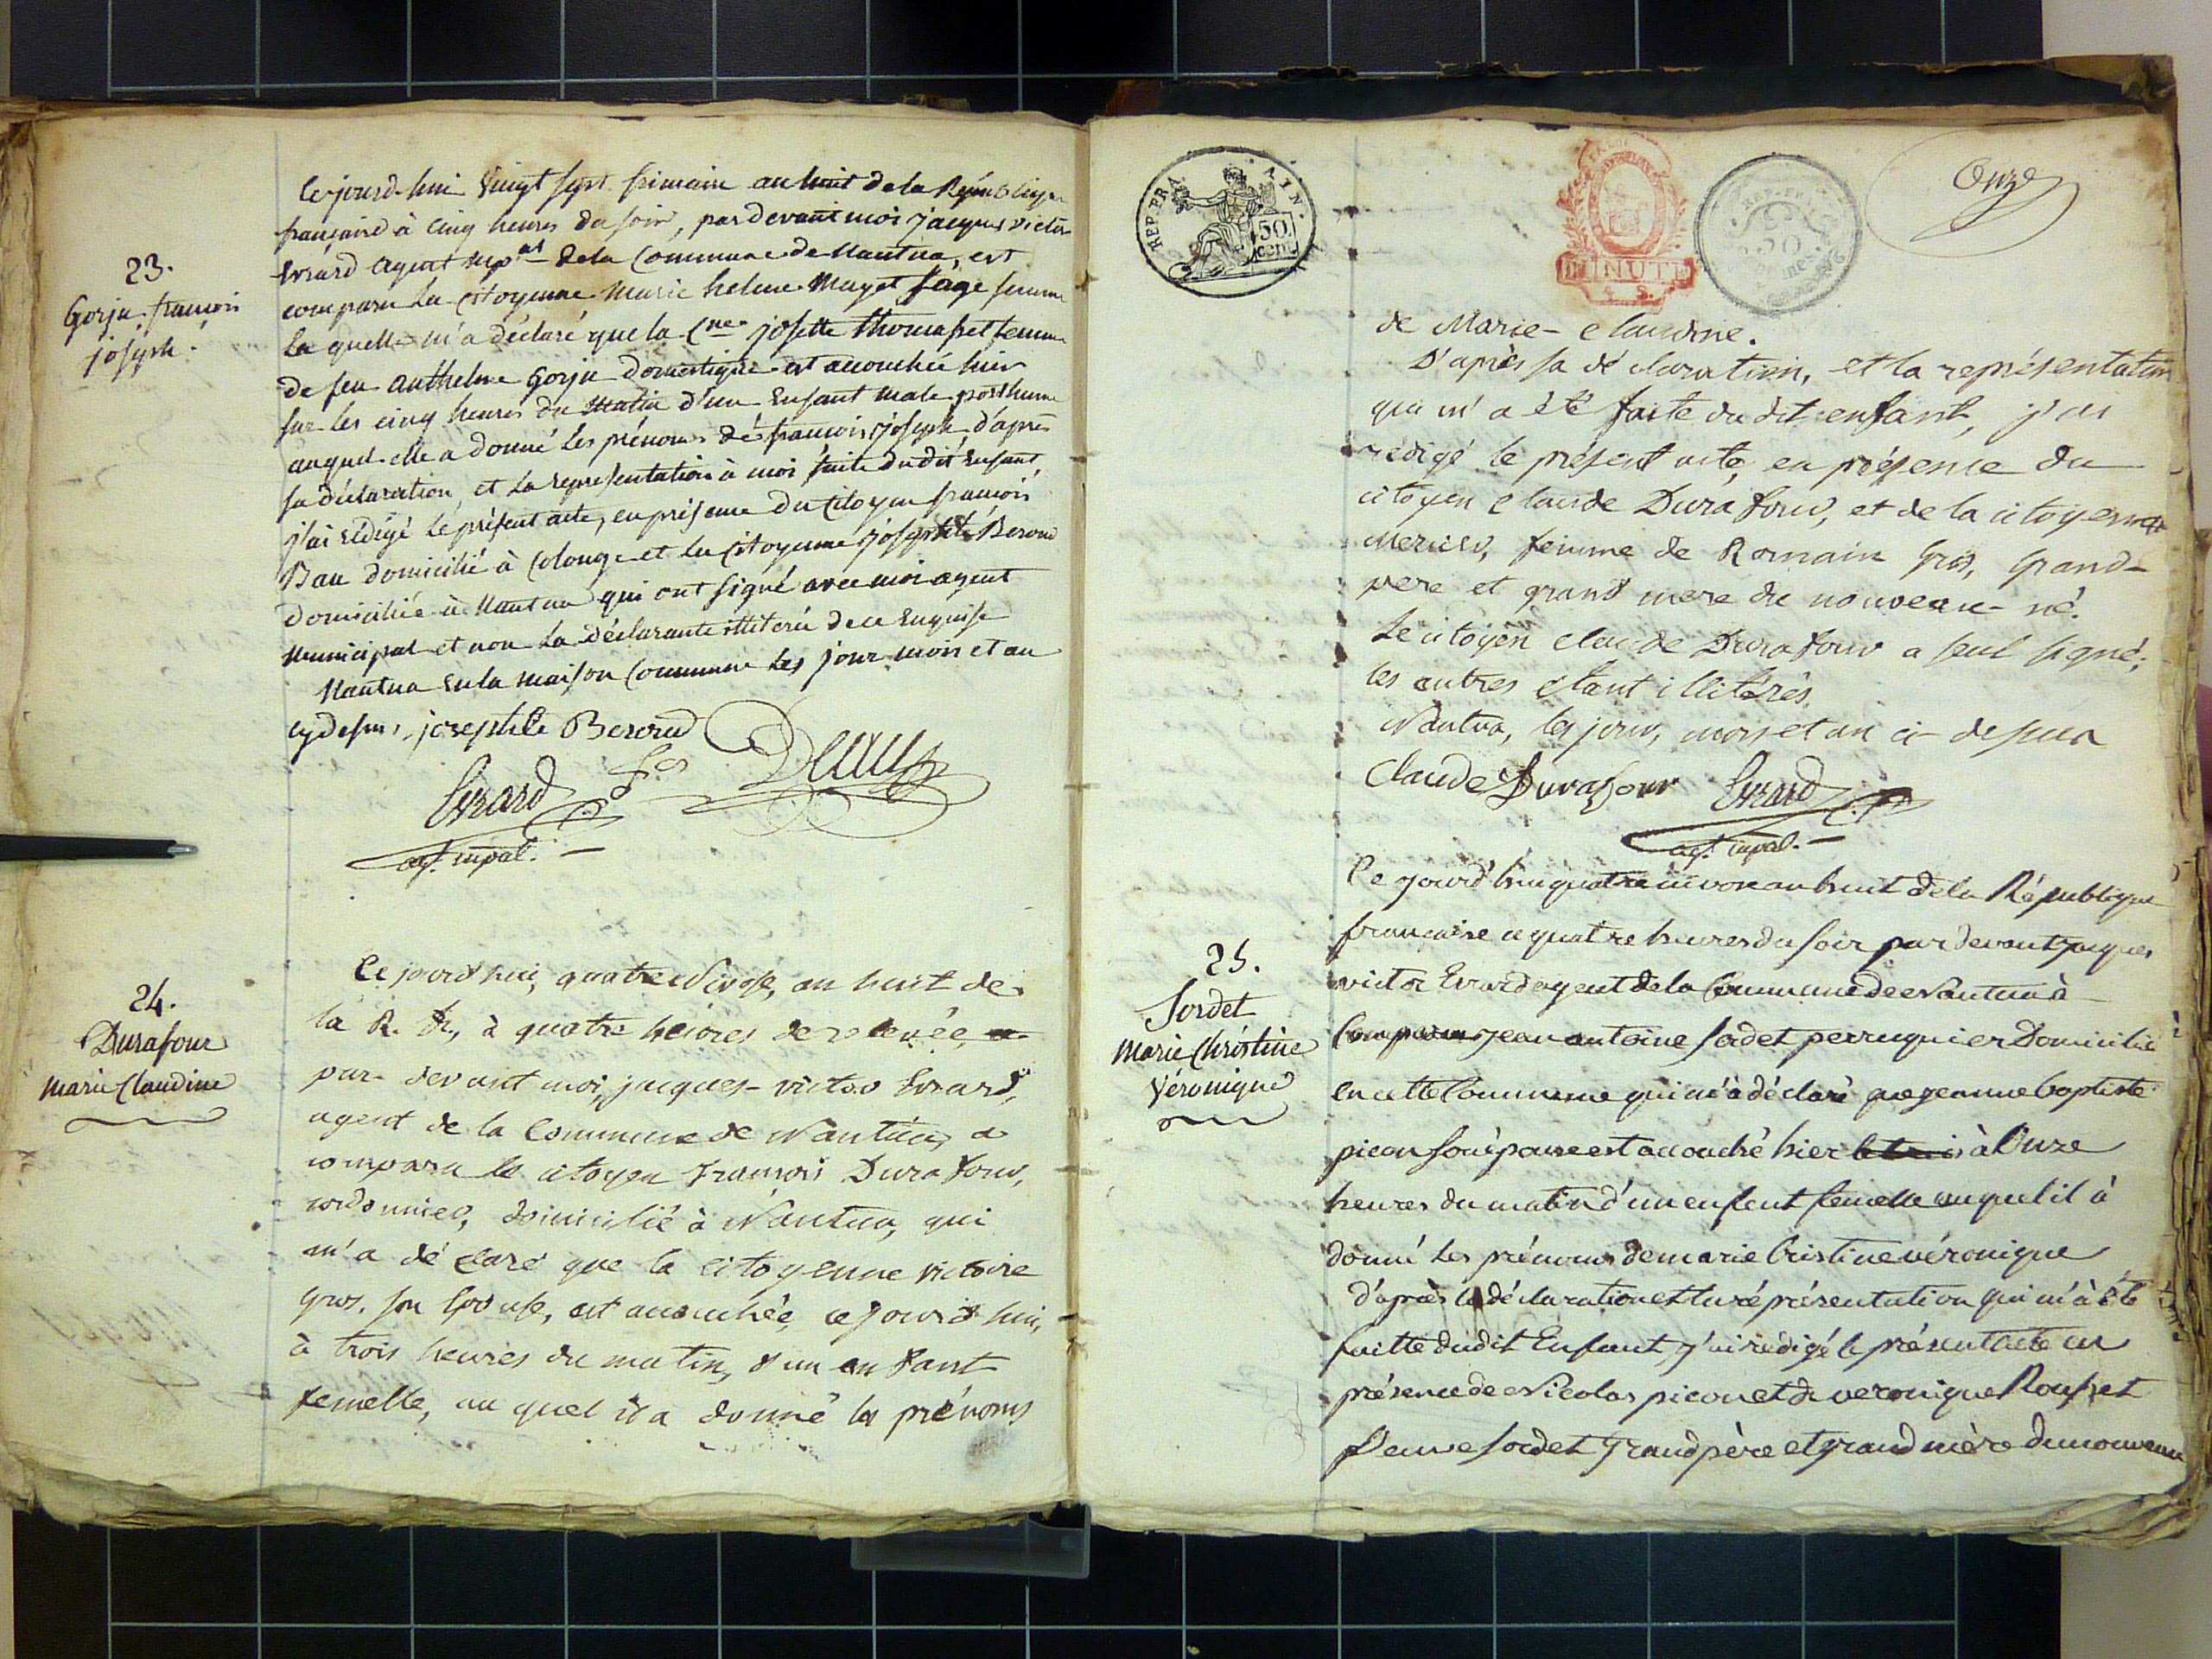 23.
Gorju françois
joseph.
Ce jourd'hui vingt sept frimaire an huit de la République
française à cinq heures du soir, pardevant moi jacques victor
Evrard agent mpal de la Commune de Nantua, est
comparu la citoyenne Marie helene Mayet sage femme
la quelle m'a déclaré que la Cne josette thomasset femme
de feu anthelme Gorju domestique est accouchée hier
sur les cinq heures du matin d'un Enfant male posthume
auquel elle a donné les prénoms de françois joseph d'après
sa déclaration, et la représentation à moi faite du dit Enfant,
j'ai rédigé le présent acte, en présence du Citoyen françois
Dau domicilié à Colonge et la Citoyenne josephte Beroud
domiciliée à Nantua qui ont signé avec moi agent
Municipal et non la déclarante illiterée de ce Enquise
Nantua En la maison Commune les jour mois et an
cy dessus, josephte Beroud
Evrard fcs
ag. mpal.
24.
Durafour
Marie Claudine
Ce jourd'hui, quatre Nivose, an huit de
la R. fr., à quatre heures de relevée,
par-devant moi, jacques-victor Evrard,
agent de la Commune de Nantua, a
comparu le citoyen françois Durafour,
cordonnier, domicilié à Nantua, qui
m'a déclaré que la citoyenne victoire
gros, son Epouse, est accouchée, ce jourd'hui,
à trois heures du matin, d'un enfant
femelle, au quel il a donné les prénoms
REP. FRA. AIN.
50 cent
MINUTE
REP. FRA.
50
Onze
de Marie-Claudine.
D'après sa déclaration, et la représentation
qui m'a été faite du dit enfant, j'ai
redigé le présent acte, en présence du
citoyen Claude Durafour, et de la citoyenne
Mercier, femme de Romain Gros, Grand-
pere et grand mere du nouveau-né.
Le citoyen Claude Durafour a seul signé;
les autres étant illitérés.
Nantua, les jour, mois et an ci-dessus
Claude Durafour Evrard
ag. mpal.
25.
Sordet
Marie Christine
Véronique
Ce jourd'hui quatre nivose an huit de la République
francaise a quatre heures du soir par devant jacques
victor Evrard agent de la Commune de Nantua à
Comparu jean antoine Sordet perruquier Domicilié
en cette Commune qui m'à déclaré que jeanne baptiste
picon son épouse est accouché hier à Onze
heures du matin d'un enfent femelle auquel il à
donné les prénoms de marie Cristine véronique
d'après la déclaration et la réprésentation qui m'à été
faitte dudit Enfant, j'ai rédigé le présent acte en
présence de Nicolas picon et de veronique Rousset
Veuve Sordet Grand père et grand mère du nouveau